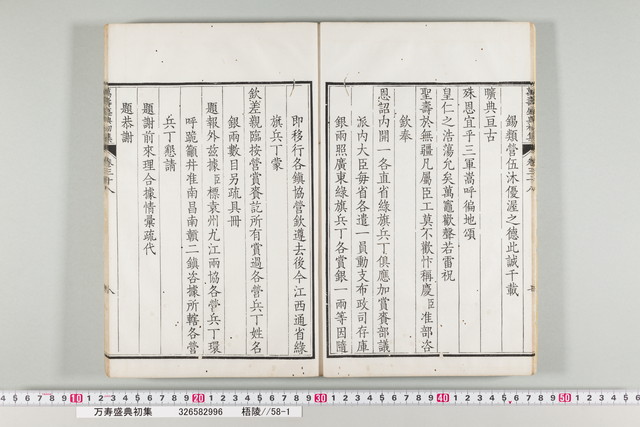 錫類營伍沐優渥之德此誠千載
曠典亘古
殊恩宜乎三軍嵩呼徧地頌
皇仁之浩蕩允矣萬竈歡聲若雷祝
聖壽於無疆凡屬臣工莫不歡忭稱慶臣准部咨
欽奉
恩詔內開一各直省綠旗兵丁俱應加賞賚部議
派內大臣每省各遣一員動支布政司存庫
銀兩照廣東綠旗兵丁各賞銀一兩等因隨
卷三十八
即移行各鎮協營欽遵去後今江西通省綠
旗兵丁蒙
欽差親臨按營賞賚訖所有賞過各營兵丁姓名
銀兩數目另疏具冊
題報外茲據臣標袁州九江兩協各營兵丁環
呼跪籲并准南昌南贛二鎮咨據所轄各營
兵丁懇請
題謝前來理合據情彙疏代
題恭謝
卷三十八
10 20 30 40 50
万寿盛典初集 326582996 梧陵//58-1